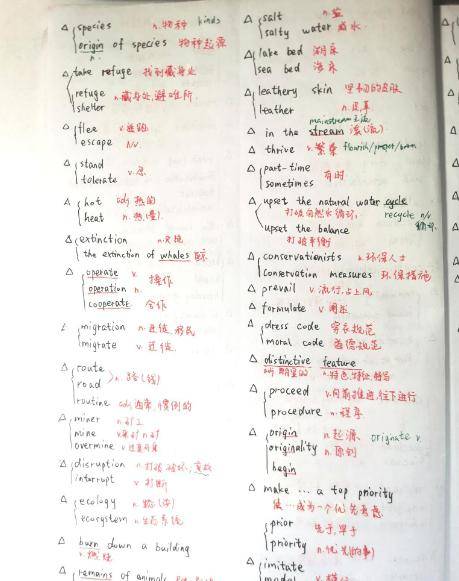 △ species n.物种 kinds
origin of species 物种起源
n.
△ take refuge 找到藏身处
refuge n.藏身处,避难所
shelter
△ flee v.逃跑
escape n/v.
△ stand
tolerate v.忍
△ hot adj 热的
heat n.热(量).
△ extinction n.灭绝
the extinction of whales 鲸
△ operate v.
operation n. 操作
cooperate 合作
△ migration n.迁徙,移民
migrate v.迁徙
△ route
road n.路(线)
routine adj 通常,惯例的
△ miner n.矿工
mine v.采矿 n.矿
overmine v.过度开采
△ disruption n.打扰
interrupt v.打断
△ ecology n.
ecosystem n.生态系统
△ burn down a building
v.燃烧
△ remains of animals
△ salt n.盐
salty water 咸水
△ lake bed 湖床
sea bed 海床
△ leathery skin 坚韧的皮肤
leather n.皮革
mainstream 主流
△ in the stream 流(流)
△ thrive v.繁荣 flourish/prosper/boom
△ part-time
sometimes 有时
△ upset the natural water cycle
打破自然水循环. recycle n/v
循环.
upset the balance
打破平衡
△ conservationists n.环保人士
conservation measures 环保措施
△ prevail v.流行,占上风
△ formulate v.阐述
△ dress code 穿衣规范
moral code 道德规范
△ distinctive feature
adj 明显的 n.特色,特征,
△ proceed v.向前推进,往下进行
procedure n.程序
△ origin n.起源. orignate v.
originality n.原创
begin
△ make ... a top priority
使...成为一个优先考虑
prior 先于,早于
priority n.优先(的事)
△ imitate
model v.